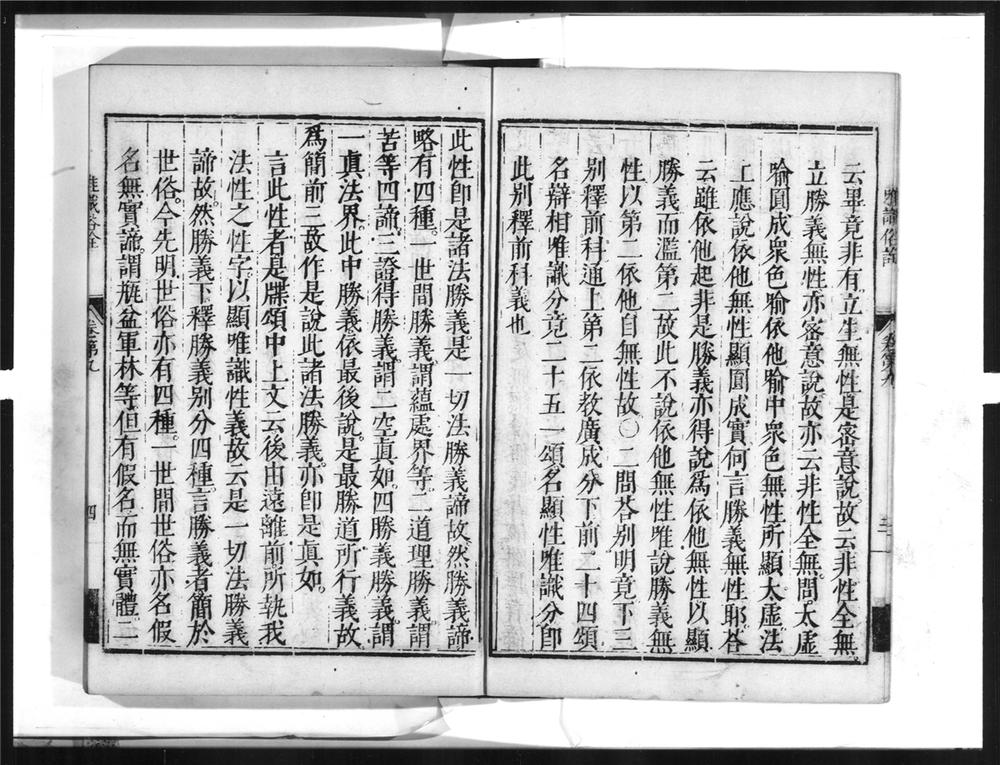 云畢竟非有立生無性是密意說故云非性全無
立勝義無性亦密意說故亦云非性全無問太虛
喻圓成衆色喻依他喻中衆色無性所顯太虛法
上應說依他無性顯圓成實何言勝義無性耶荅
云雖依他起非是勝義亦得說爲依他無性以顯
勝義而濫第二故此不說依他無性唯說勝義無
性以第二依他自無性故〇二問荅別明竟下三
別釋前科通上第二依教廣成分下前二十四頌
名辯相唯識分竟二十五一頌名顯性唯識分卽
此別釋前科義也
此性卽是諸法勝義是一切法勝義諦故然勝義諦
略有四種一世間勝義謂蘊處界等二道理勝義謂
苦等四諦三證得勝義謂二空眞如四勝義勝義謂
一眞法界此中勝義依最後說是最勝道所行義故
爲簡前三故作是說此諸法勝義亦卽是眞如
言此性者是牒頌中上文云後由遠離前所執我
法性之性字以顯唯識性義故云是一切法勝義
諦故然勝義下釋勝義別分四種言勝義者簡於
世俗今先明世俗亦有四種一世間世俗亦名假
名無實諦謂瓶盆軍林等但有假名而無實體二
卷第九
四